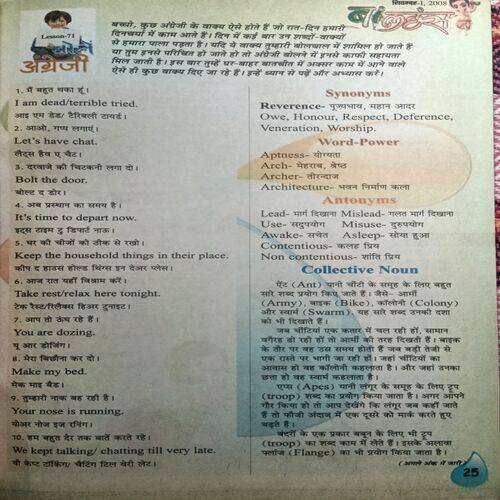 सितम्बर-I, 2008
बालहंस
Lesson-71
आओ सीखें
अंग्रेजी
बच्चो, कुछ अंग्रेजी के वाक्य ऐसे होते हैं जो रात-दिन हमारी
दिनचर्या में काम आते हैं। दिन में कई बार उन शब्दों-वाक्यों
से हमारा पाला पड़ता है। यदि ये वाक्य तुम्हारी बोलचाल में शामिल हो जाते हैं
या तुम इनसे परिचित हो जाते हो तो अंग्रेजी बोलने में इनसे काफी सहायता
मिल जाती है। इस बार तुम्हें घर-बाहर बातचीत में अक्सर काम में आने वाले
ऐसे ही कुछ वाक्य दिए जा रहे हैं। इन्हें ध्यान से पढ़ें और अभ्यास करें।
1. मैं बहुत थका हूं।
I am dead/terrible tried.
आइ एम डेड/ टैरिबली टायर्ड।
2. आओ, गप्प लगाएं।
Let's have chat.
लैट्स हैव ए चैट।
3. दरवाजे की चिटकनी लगा दो।
Bolt the door.
बोल्ट द डोर।
4. अब प्रस्थान का समय है।
It's time to depart now.
इट्स टाइम टु डिपार्ट नाऊ।
5. घर की चीजों को ठीक से रखो।
Keep the household things in their place.
कीप द हाउस होल्ड थिंग्स इन देअर प्लेस।
6. आज रात यहीं विश्राम करें।
Take rest/relax here tonight.
टेक रैस्ट/रिलैक्स हिअर टुनाइट।
7. आप तो ऊंघ रहे हैं।
You are dozing.
यू आर डोजिंग।
8. मेरा बिछौना कर दो।
Make my bed.
मेक माइ बैड।
9. तुम्हारी नाक बह रही है।
Your nose is running.
योअर नोज इज रनिंग।
10. हम बहुत देर तक बातें करते रहे।
We kept talking/ chatting till very late.
वी केप्ट टॉकिंग/ चैटिंग टिल वेरी लेट।
Synonyms
Reverence- पूज्यभाव, महान आदर
Owe, Honour, Respect, Deference,
Veneration, Worship.
Word-Power
Aptness- योग्यता
Arch- मेहराब, श्रेष्ठ
Archer- तीरन्दाज
Architecture- भवन निर्माण कला
Antonyms
Lead- मार्ग दिखाना Mislead- गलत मार्ग दिखाना
Use- सदुपयोग Misuse- दुरुपयोग
Awake- सचेत Asleep- सोया हुआ
Contentious- कलह प्रिय
Non contentious- शांति प्रिय
Collective Noun
ऐंट (Ant) यानी चींटी के समूह के लिए बहुत
सारे शब्द प्रयोग किए जाते हैं। जैसे- आर्मी
(Army), बाइक (Bike), कॉलोनी (Colony)
और स्वार्म (Swarm), यह सारे शब्द उनकी दशा
को भी दिखाते हैं।
जब चींटियां एक कतार में चल रही हों, सामान
वगैरह ढो रही हों तो आर्मी की तरह दिखती हैं। बाइक
के तौर पर वह उस समय होती हैं जब बड़ी तेजी से
एक रास्ते पर भागी जा रही हों। जहां चींटियों का
आवास हो वह कॉलोनी कहलाता है। और जहां उनका
छत्ता हो वह स्वार्म कहलाता है।
एप्स (Apes) यानी लंगूर के समूह के लिए ट्रूप
(troop) शब्द का प्रयोग किया जाता है। अगर आपने
गौर किया हो तो आप देखेंगे कि लंगूर जब कहीं जाते
हैं तो फौजी अंदाज में एक दूसरे को मार्क करते हुए
बढ़ते हैं।
बंदरों के एक प्रकार बबून के लिए भी ट्रूप
(troop) का शब्द काम में लेते हैं। इसके अलावा
फ्लांज (Flange) का भी प्रयोग किया जाता है।
(अगले अंक में जारी)
25